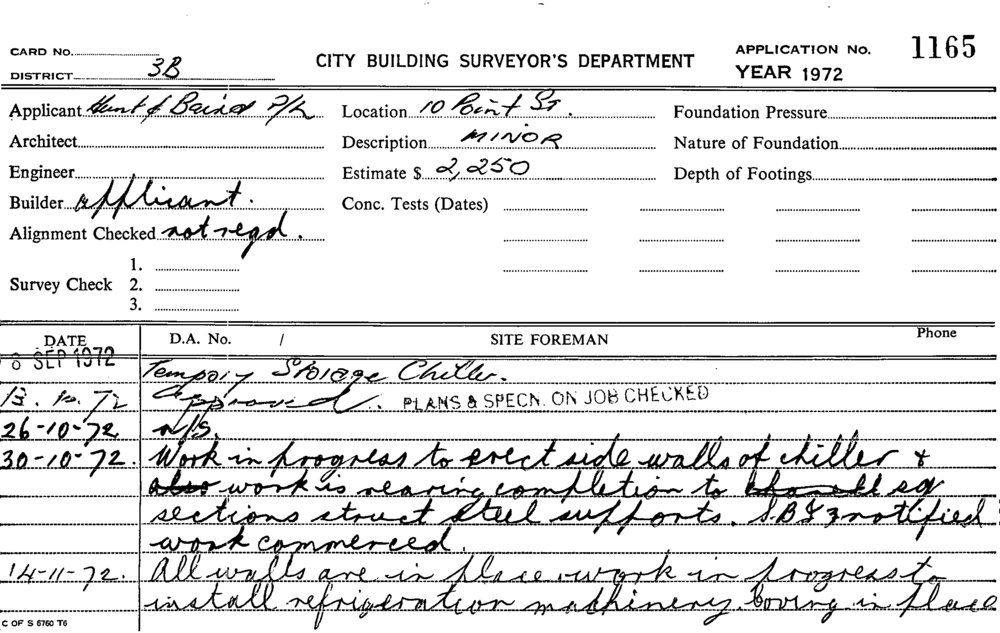 CARD NO.
DISTRICT 3B
CITY BUILDING SURVEYOR'S DEPARTMENT
APPLICATION No. 1165
YEAR 1972
Applicant Hunt & Baird P/L
Location 10 Point St.
Foundation Pressure
Architect
Description MINOR
Nature of Foundation
Engineer
Estimate $ 2,250
Depth of Footings
Builder applicant.
Conc. Tests (Dates)
Alignment Checked not reqd.
1.
Survey Check 2.
3.
DATE D.A. No. / SITE FOREMAN Phone
8 SEP 1972 Storage Chiller.
13.10.72 Approved. PLANS & SPECN. ON JOB CHECKED
26-10-72 n/s.
30-10-72. Work in progress to erect side walls of chiller &
also work is nearing completion to
sections struct steel supports. notified
work commenced.
14-11-72. All walls are in place work in progress to
install refrigeration machinery. in place
C OF S 6760 T6